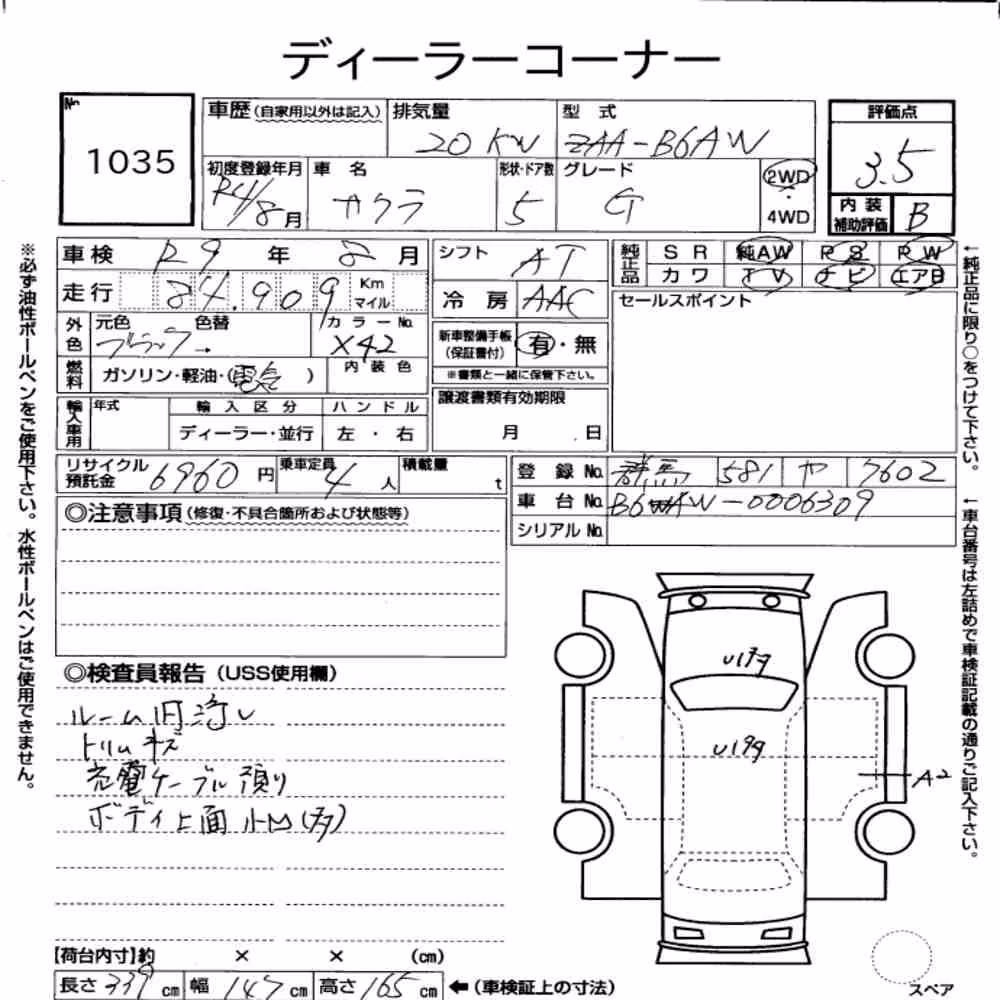 ディーラーコーナー
No. 1035
車歴(自家用以外は記入) 排気量 20KW 型式 ZAA-B6AW
初度登録年月 R4/8月 車名 サクラ 形状・ドア数 5 グレード G 2WD・4WD
評価点 3.5
内装補助評価 B
車検 R9年8月
走行 84.909 Km マイル
外色 元色 ブラック 色替 → カラーNo. X42
燃料 ガソリン・軽油・(電気) 内装色
輸入車用 年式 輸入区分 ディーラー・並行 ハンドル 左・右
シフト AT
冷房 AAC
新車整備手帳(保証書付) 有・無
※書類と一緒に保管下さい。
譲渡書類有効期限 月 日
純正品 SR 純AW PS PW
カワ TV ナビ エアB
セールスポイント
リサイクル預託金 6960円 乗車定員 4人 積載量 t
登録No. 群馬 581 ヤ 7602
車台No. B6AW-0006309
シリアルNo.
◎注意事項(修復・不具合箇所および状態等)
◎検査員報告(USS使用欄)
ルーム内汚レ
トリムキズ
充電ケーブル預り
ボディ上面小凹(多)
U1
U1
A2
【荷台内寸】約 × × (cm)
長さ 339 cm 幅 147 cm 高さ 165 cm ←(車検証上の寸法)
スペア
※必ず油性ボールペンをご使用下さい。水性ボールペンはご使用できません。
←純正品に限り○をつけて下さい。
←車台番号は左詰めで車検証記載の通りご記入下さい。